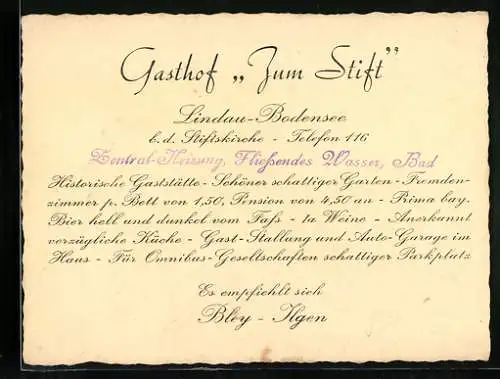 Gasthof „Zum Stift”
Lindau-Bodensee
b. d. Stiftskirche - Telefon 116
Zentral-Heizung, Fließendes Wasser, Bad
Historische Gaststätte - Schöner schattiger Garten - Fremden-
zimmer p. Bett von 1,50, Pension von 4,50 an - Prima bay.
Bier hell und dunkel vom Faß - 1a Weine - Anerkannt
vorzügliche Küche - Gast-Stallung und Auto-Garage im
Haus - Für Omnibus-Gesellschaften schattiger Parkplatz
Es empfiehlt sich
Bley - Ilgen